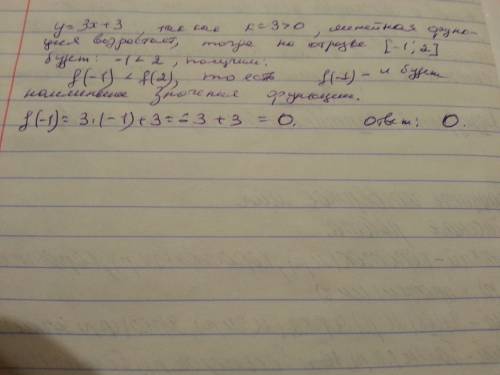 y = 3x + 3 так как k = 3 > 0, линейная функ-
ция возрастает, тогда на отрезке [-1; 2]
будет: -1 < 2, получим:
f(-1) < f(2), то есть f(-1) - и будет
наименьшее значения функции.
f(-1) = 3·(-1) + 3 = -3 + 3 = 0. Ответ: 0.